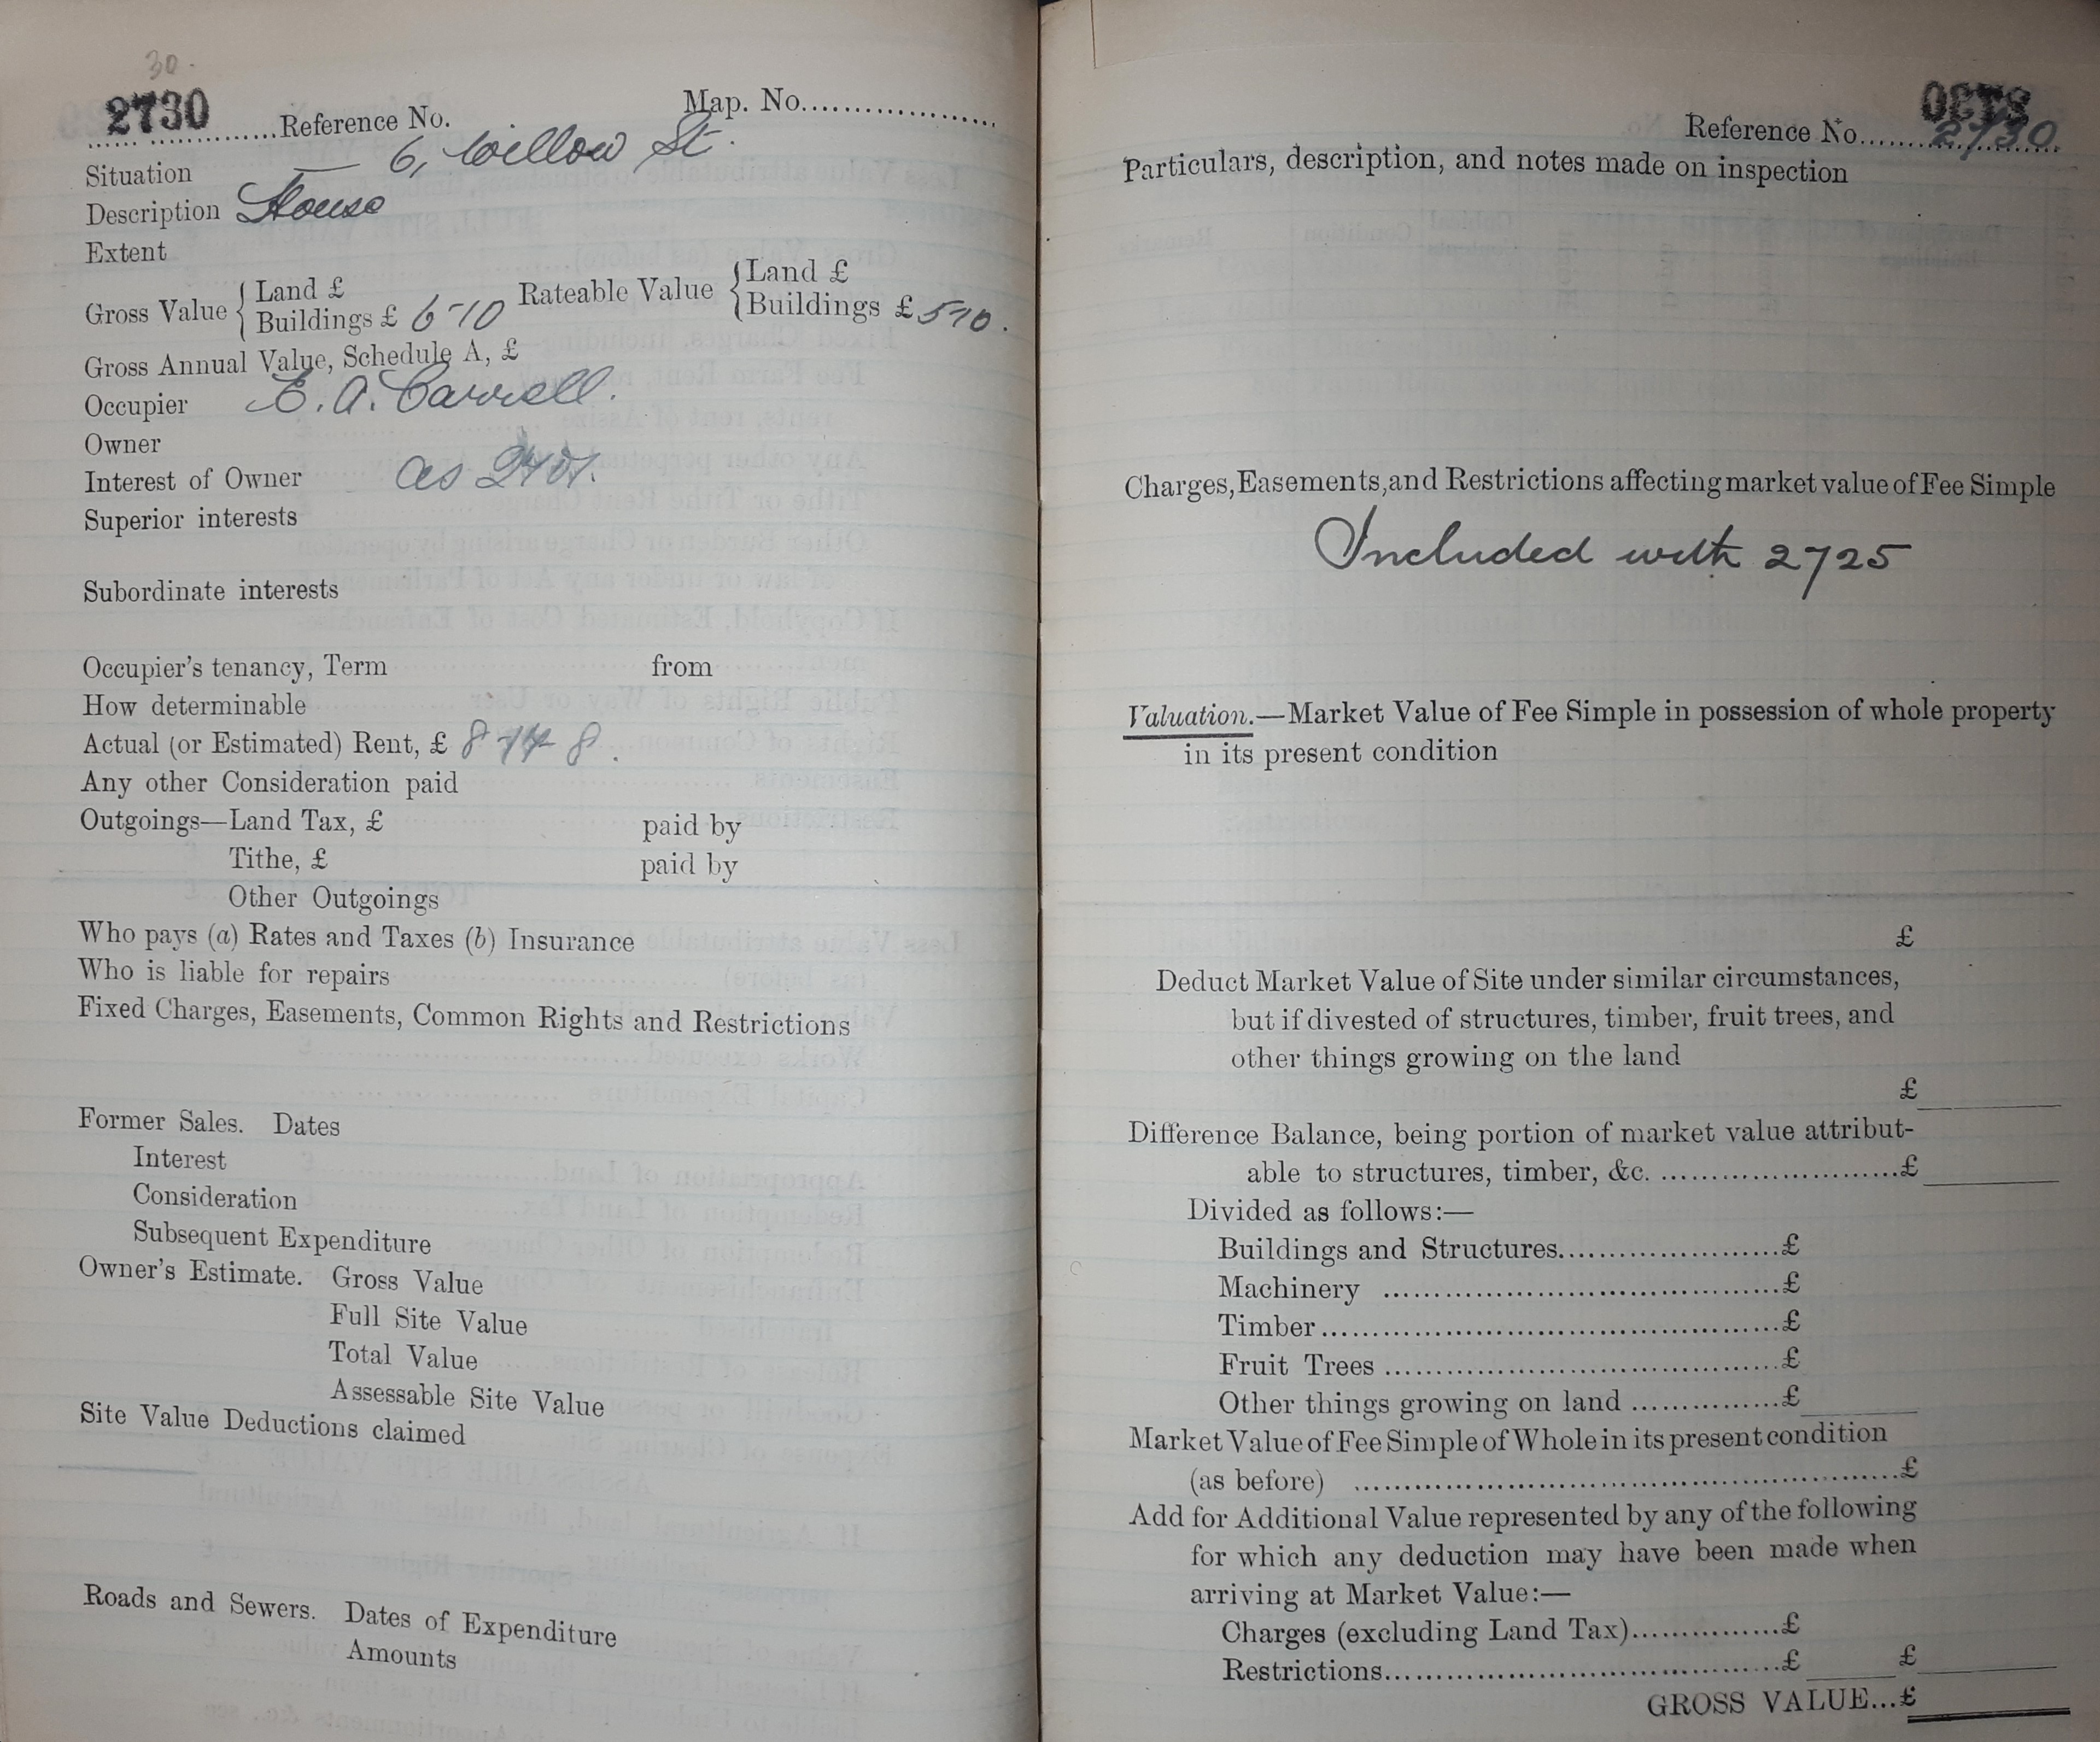 30.
2730 Reference No. Map. No.
Situation — 6, Willow St.
Description House
Extent
Gross Value { Land £ Rateable Value { Land £
Buildings £ 6-10 Buildings £ 5-10.
Gross Annual Value, Schedule A, £
Occupier E. A. Carrell.
Owner
Interest of Owner as
Superior interests
Subordinate interests
Occupier's tenancy, Term from
How determinable
Actual (or Estimated) Rent, £
Any other Consideration paid
Outgoings—Land Tax, £ paid by
Tithe, £ paid by
Other Outgoings
Who pays (a) Rates and Taxes (b) Insurance
Who is liable for repairs
Fixed Charges, Easements, Common Rights and Restrictions
Former Sales. Dates
Interest
Consideration
Subsequent Expenditure
Owner's Estimate. Gross Value
Full Site Value
Total Value
Assessable Site Value
Site Value Deductions claimed
Roads and Sewers. Dates of Expenditure
Amounts
Reference No. 2730.
Particulars, description, and notes made on inspection
Charges, Easements, and Restrictions affecting market value of Fee Simple
Included with 2725
Valuation.—Market Value of Fee Simple in possession of whole property
in its present condition
£
Deduct Market Value of Site under similar circumstances,
but if divested of structures, timber, fruit trees, and
other things growing on the land
£
Difference Balance, being portion of market value attribut-
able to structures, timber, &c. £
Divided as follows:—
Buildings and Structures £
Machinery £
Timber £
Fruit Trees £
Other things growing on land £
Market Value of Fee Simple of Whole in its present condition
(as before) £
Add for Additional Value represented by any of the following
for which any deduction may have been made when
arriving at Market Value:—
Charges (excluding Land Tax) £
Restrictions £ £
GROSS VALUE...£